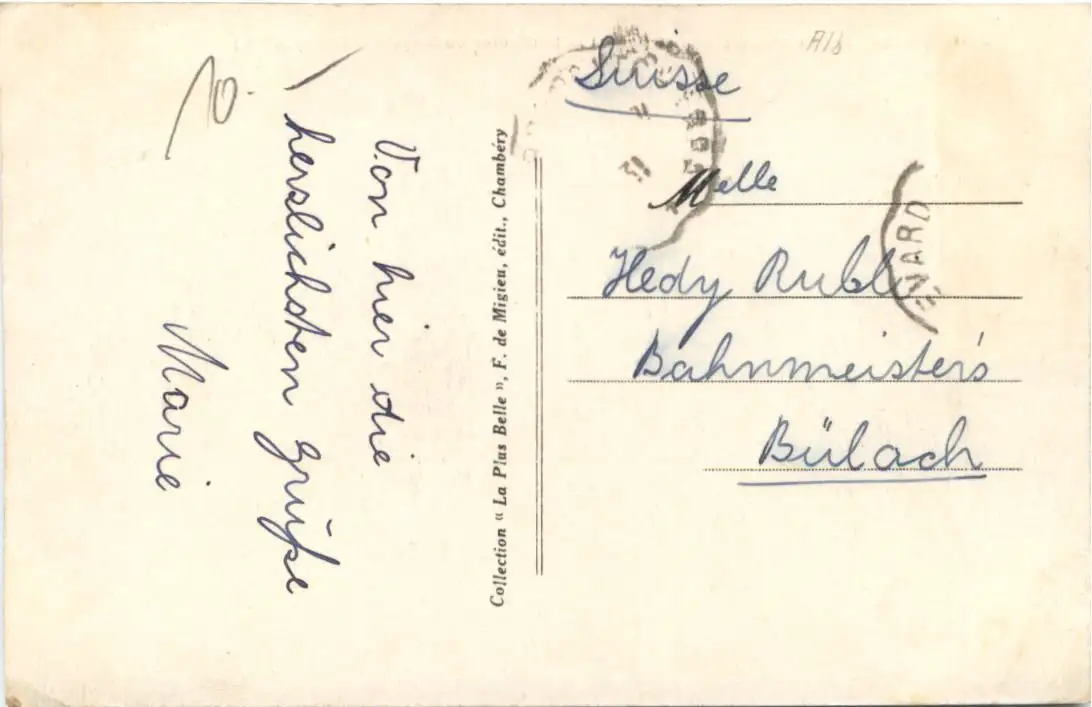 Von hier die
herzlichsten grüße
Marie
Collection « La Plus Belle », F. de Migieu, édit., Chambéry
A18
Suisse
Melle
Hedy Rubli
Bahnmeister's
Bülach
ENARD